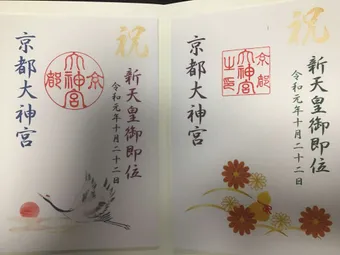 祝
新天皇御即位
令和元年十月二十二日
京都
大神宮
之印
京都大神宮
祝
新天皇御即位
令和元年十月二十二日
京
大神宮
都
京都大神宮